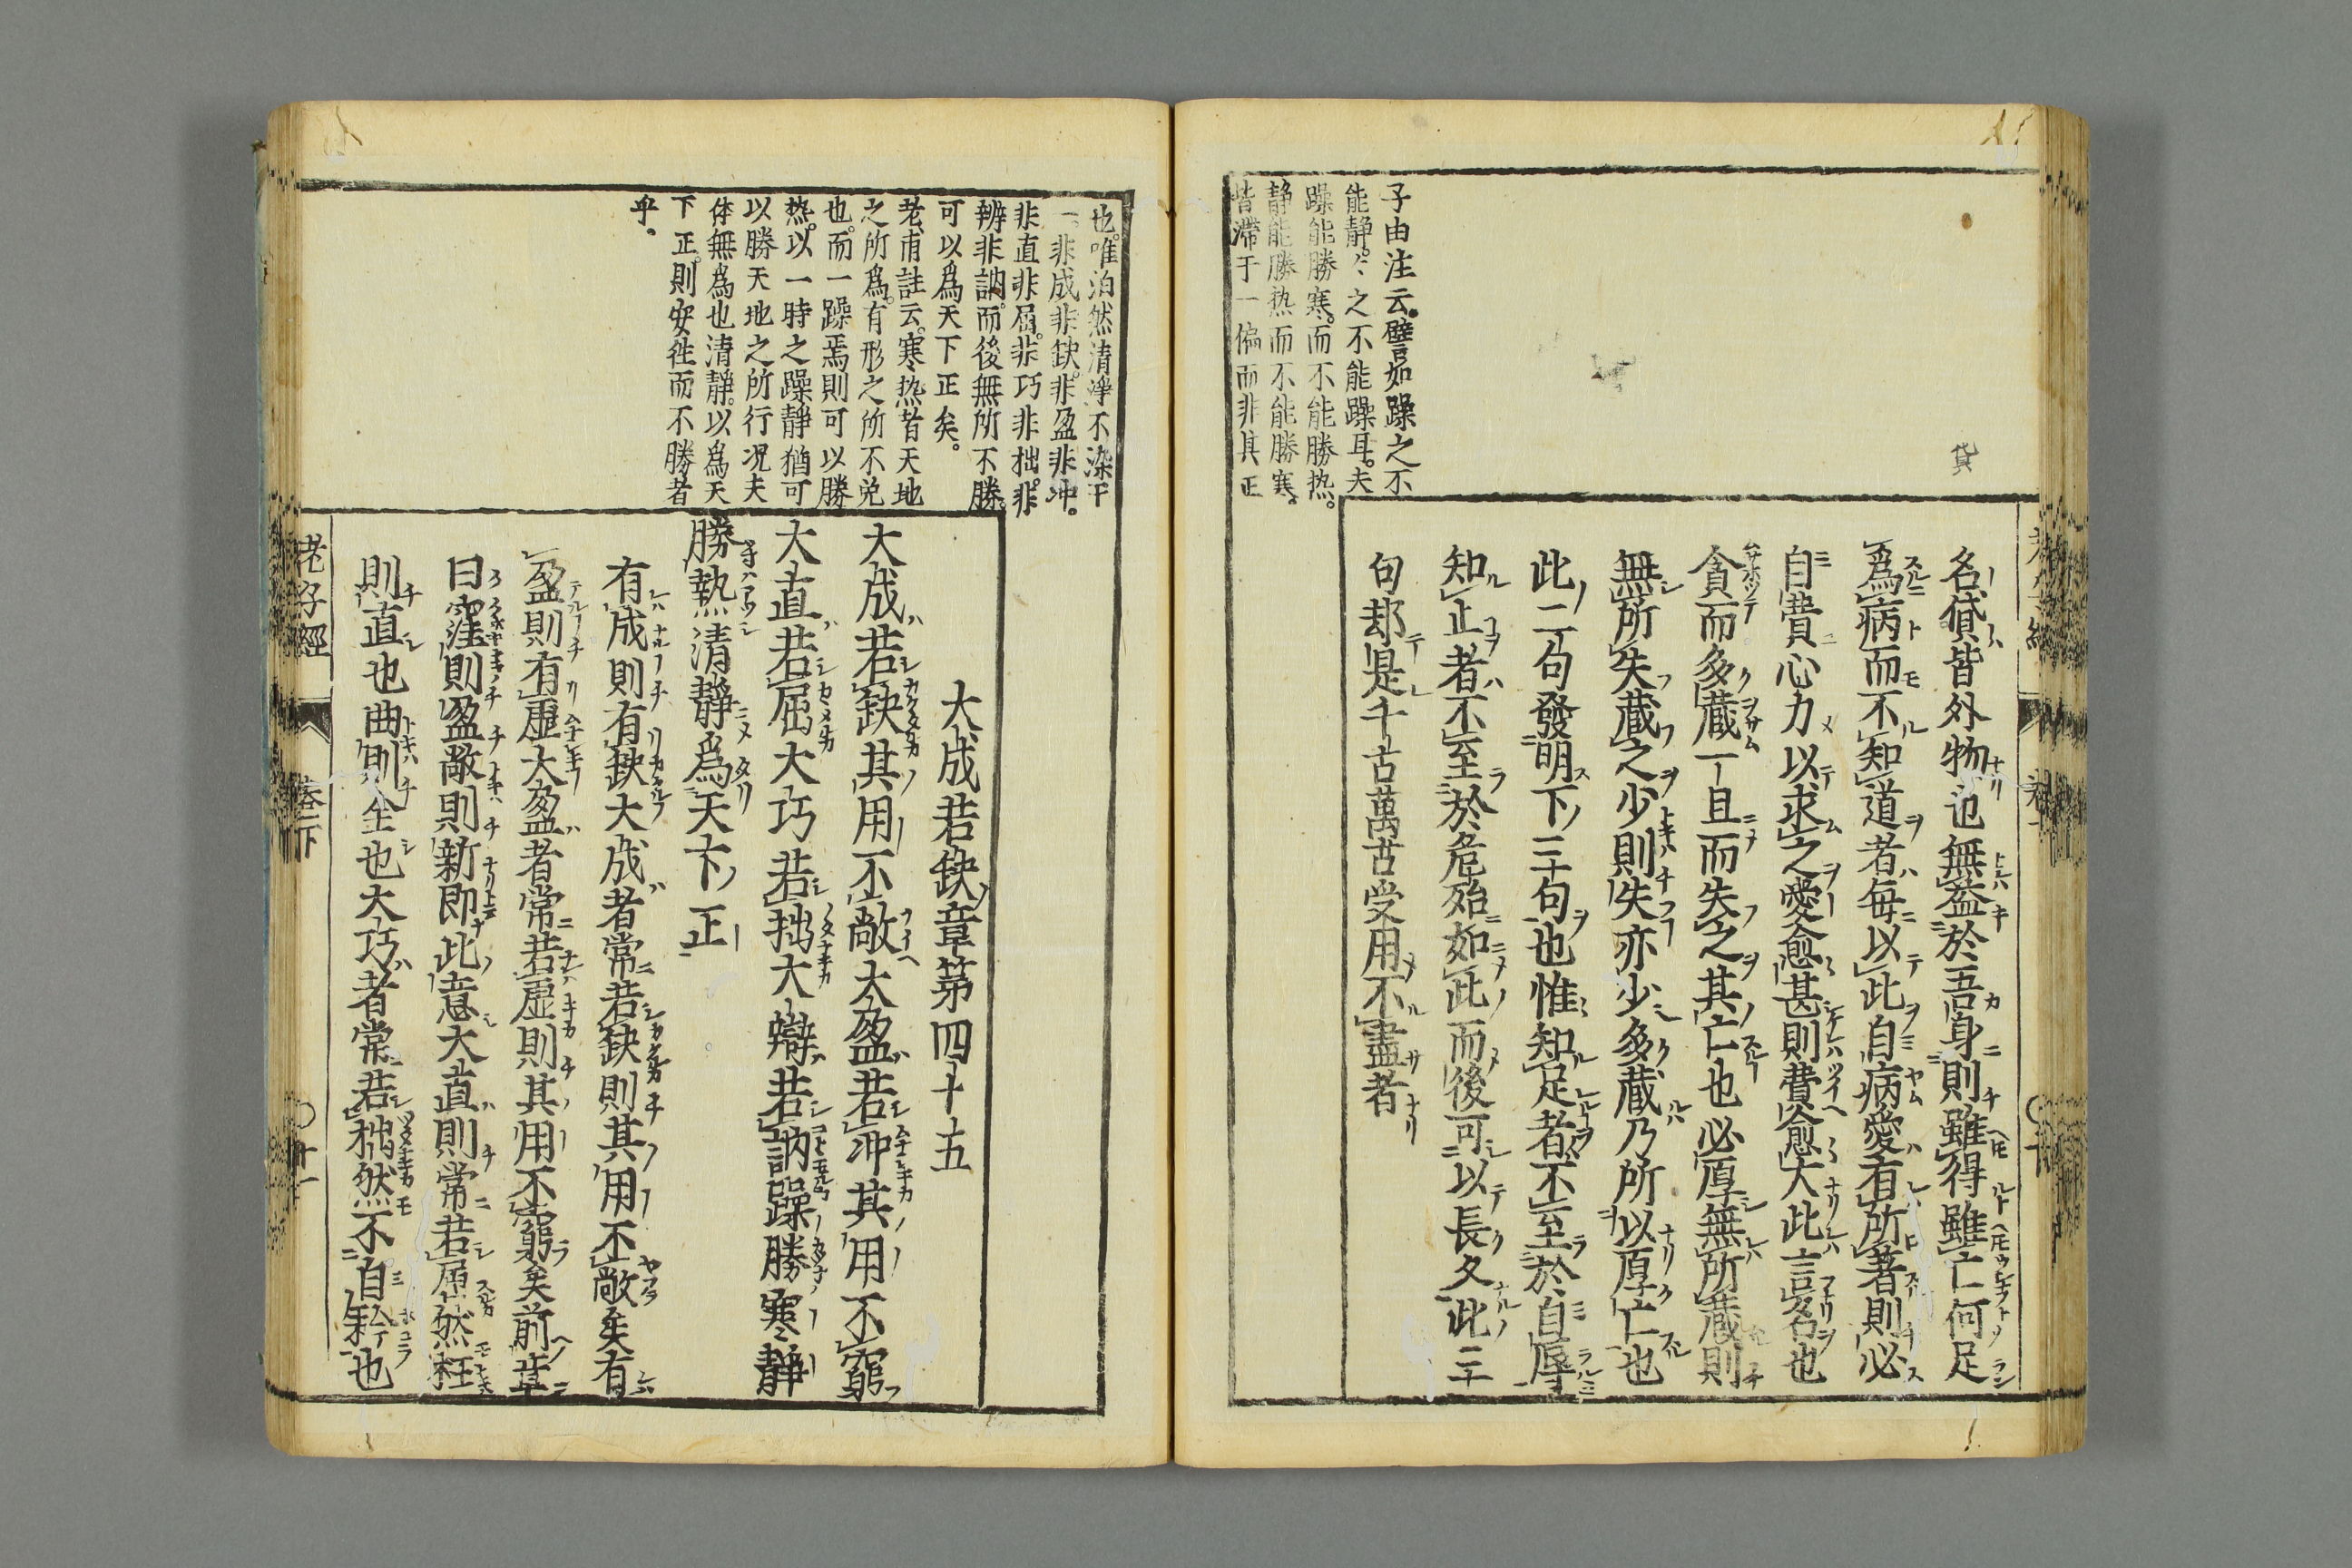 貸
名貨皆外物也無益於吾身則雖得雖亡何足
為病而不知道者每以此自病愛有所著則必
自費心力以求之愛愈甚則費愈大此言名也
貪而多藏一旦而失之其亡也必厚無所藏則
無所失藏之少則失亦少多藏乃所以厚亡也
此二句發明下三句也惟知足者不至於自辱
知止者不至於危殆如此而後可以長久此三
句却是千古萬古受用不盡者
子由注云譬如躁之不
能靜〻之不能躁耳夫
躁能勝寒而不能勝热
静能勝热而不能勝寒
皆滯于一偏而非其正
也唯泊然清淨不染于
一非成非缺非盈非冲
非直非屈非巧非拙非
辨非訥而後無所不勝
可以為天下正矣
老甫註云寒热者天地
之所為有形之所不免
也而一躁焉則可以勝
热以一時之躁靜猶可
以勝天地之所行况夫
体無為也清静以為天
下正則安往而不勝者
乎
大成若缺章第四十五
大成若缺其用不敝大盈若冲其用不窮
大直若屈大巧若拙大辯若訥躁勝寒靜
勝熱清靜為天下正
有成則有缺大成者常若缺則其用不敝矣有
盈則有虛大盈者常若虛則其用不窮矣前章
曰窪則盈敝則新即此意大直則常若屈然枉
則直也曲則全也大巧者常若拙然不自矜也
老子經 卷下 十一